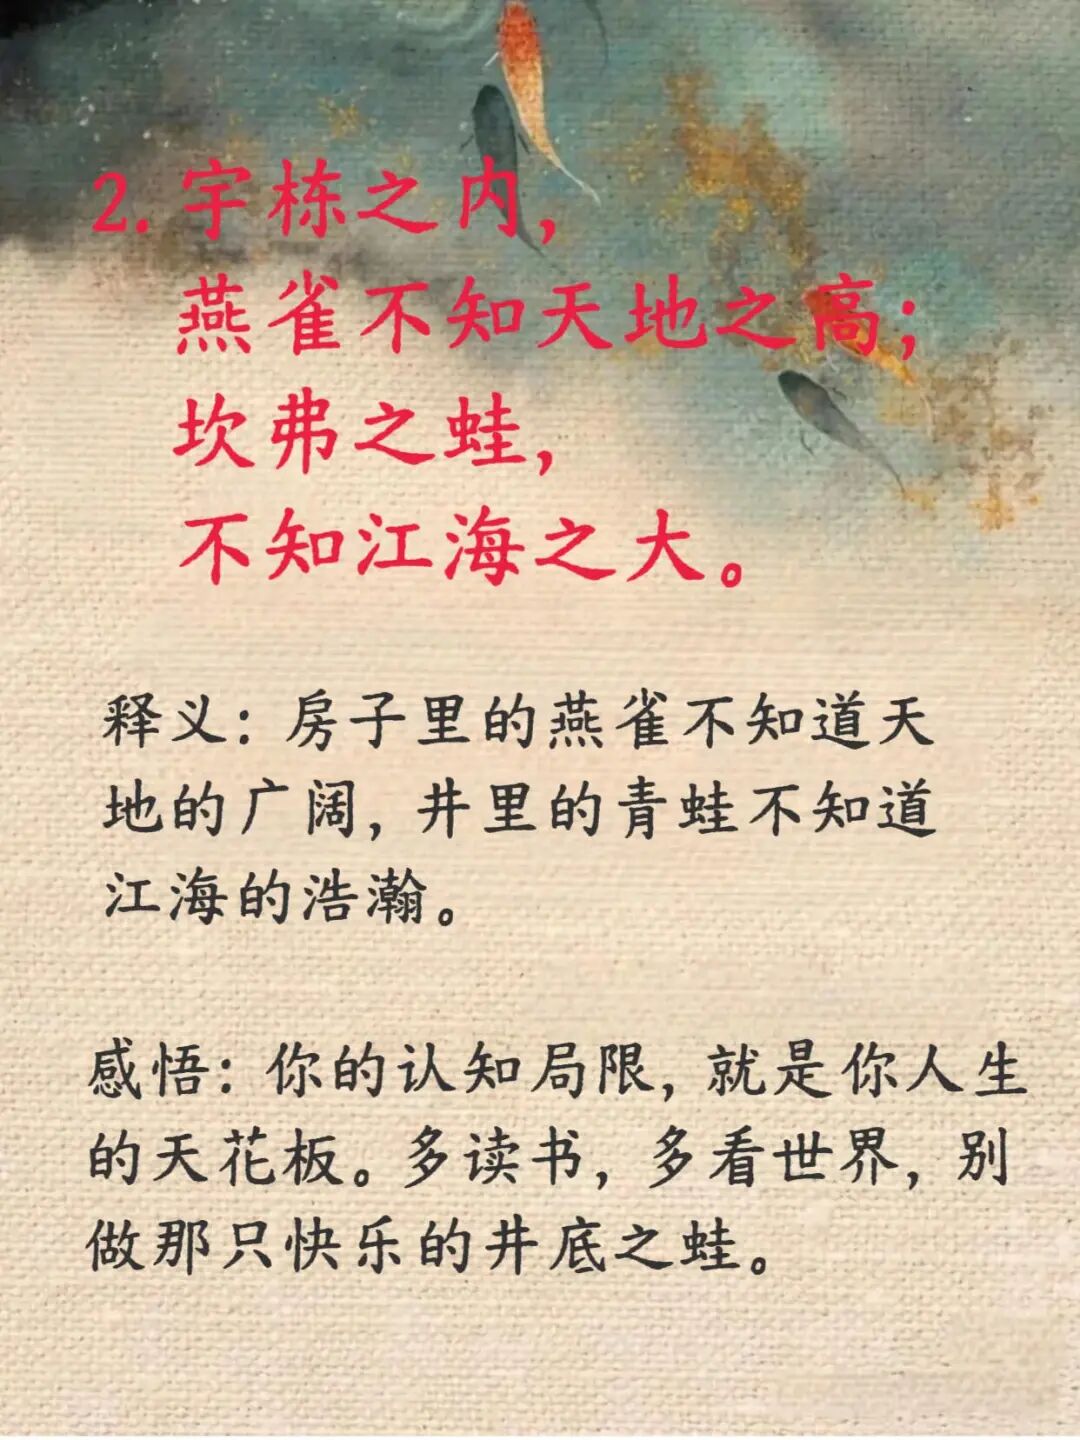 2.宇栋之内,
燕雀不知天地之高;
坎弗之蛙,
不知江海之大。
释义: 房子里的燕雀不知道天
地的广阔, 井里的青蛙不知道
江海的浩瀚。
感悟: 你的认知局限, 就是你人生
的天花板。多读书, 多看世界, 别
做那只快乐的井底之蛙。